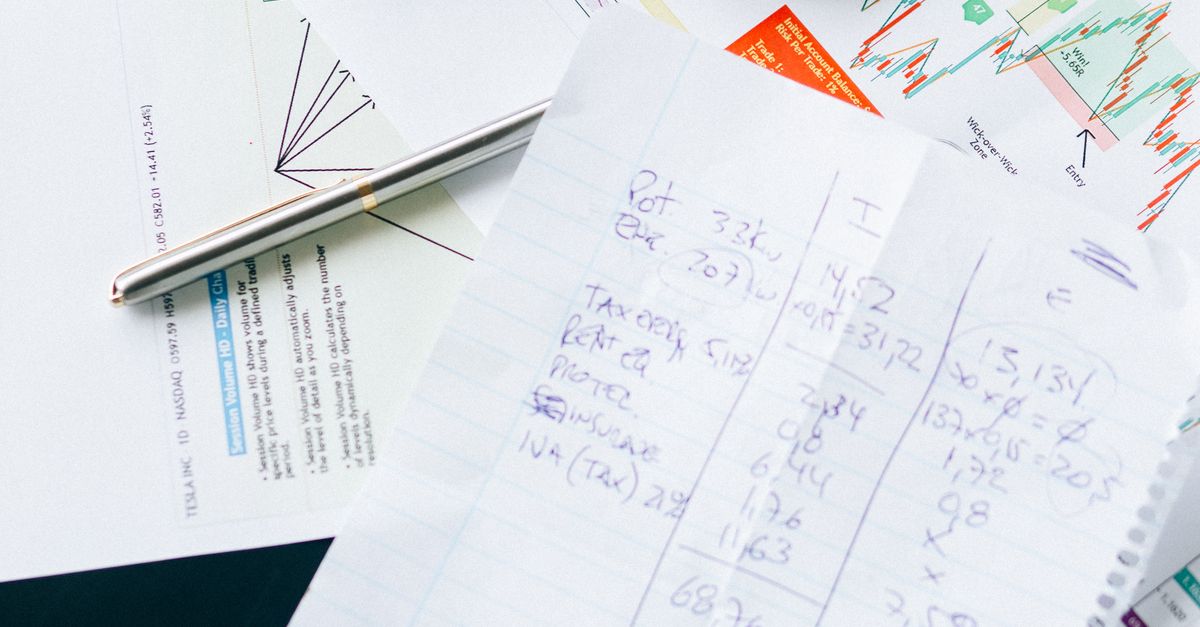 TESLA INC 1D NASDAQ O597.59 H597 2.05 C582.01 -14.41 (+2.54%)
Session Volume HD - Daily Cha
• Session Volume HD shows volume for
specific price levels during a defined tradi
period.
• Session Volume HD automatically adjusts
the level of detail as you zoom.
• Session Volume HD calculates the number
of levels dynamically depending on
resolution.
Initial Account Balance:
Risk Per Trade: 1%
Trade 1:
47
Win!
-5.65R
Wick-over-Wick
Zone
Entry
I
E
Pot. 33kw
207
14,52
= 31,22
13,134
x ø = ø
TAX 5,11%
2,34
137 x 0,15 = 20,5
RENT EQ.
0,8
1,72
PROTEZ.
6,44
0,8
INSURADE
1,76
x
IVA (TAX) 21%
11,63
x